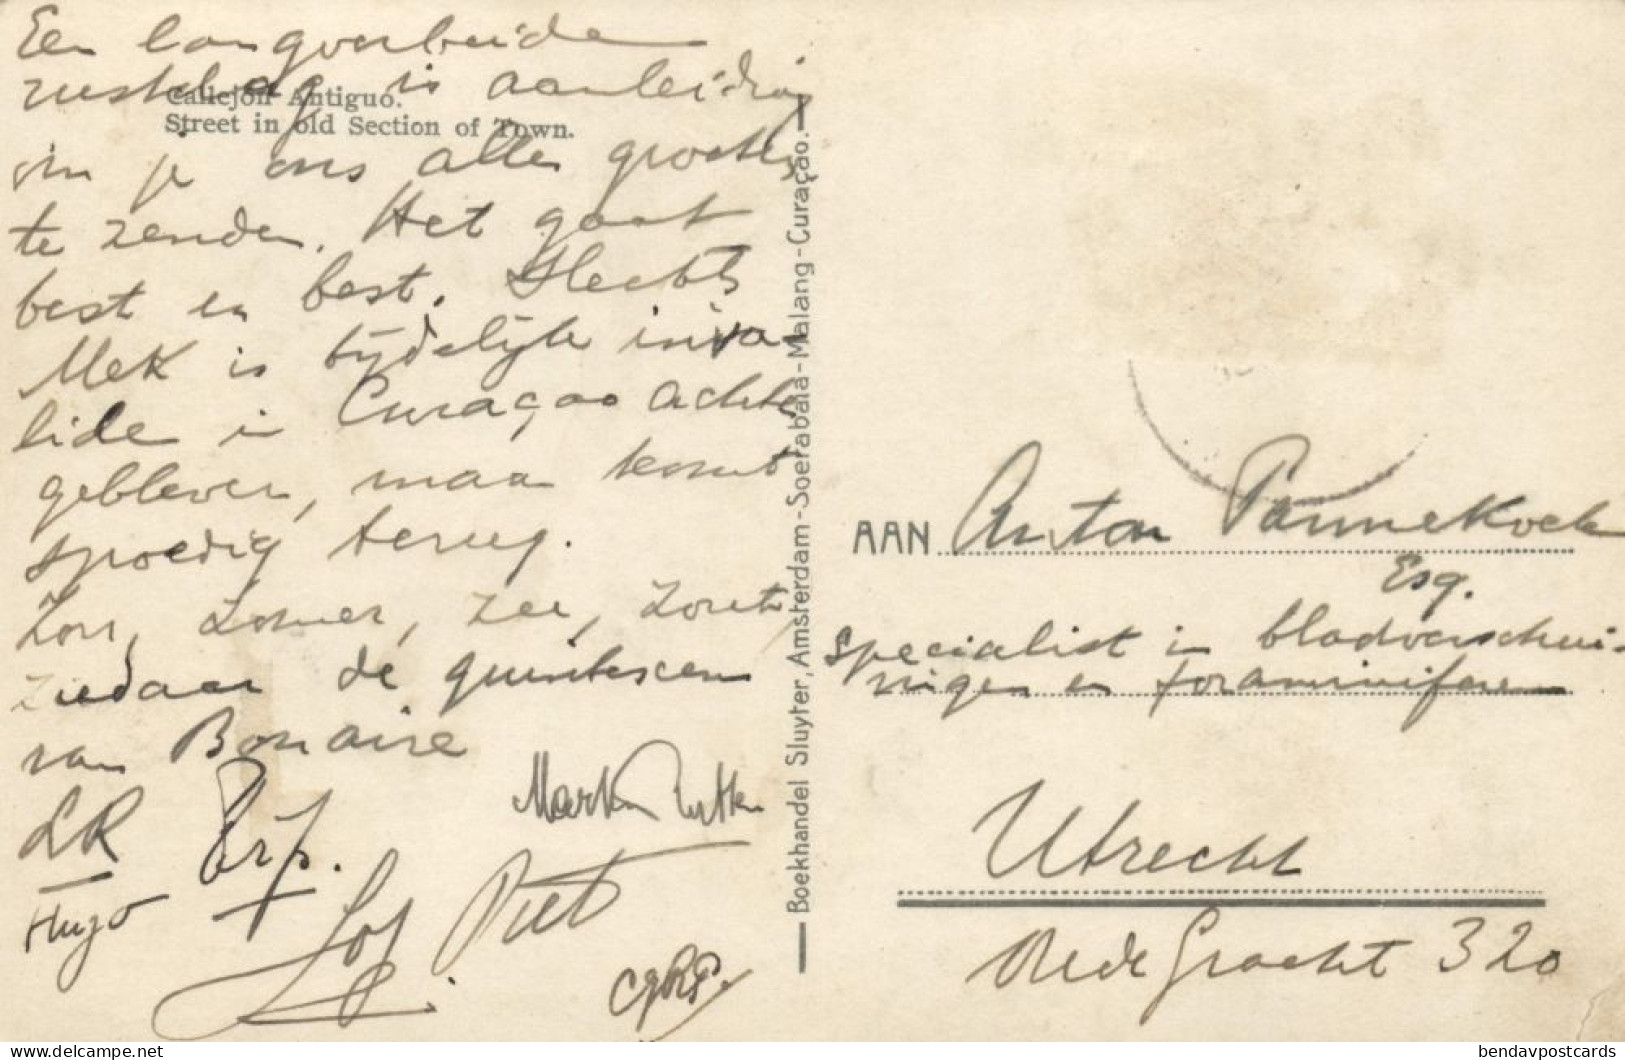 Een langverbeide
rustdag is aanleiding
om je ons aller groeten
te zenden. Het gaat
best en best. Slechts
Mek is tijdelijk inva-
lide in Curaçao achter
gebleven, maar komt
spoedig terug.
Zon, Zomer, zee, zout,
ziedaar de quintescens
van Bonaire
LR
Martin Rutten
Hugo
Piet
Callejon Antiguo.
Street in old Section of Town.
Boekhandel Sluyter, Amsterdam-Soerabaia-Malang-Curaçao.
AAN Anton Pannekoek
Esq.
specialist in bladverschui-
vingen en foraminiferen
Utrecht
Oude Gracht 320
bendavpostcards